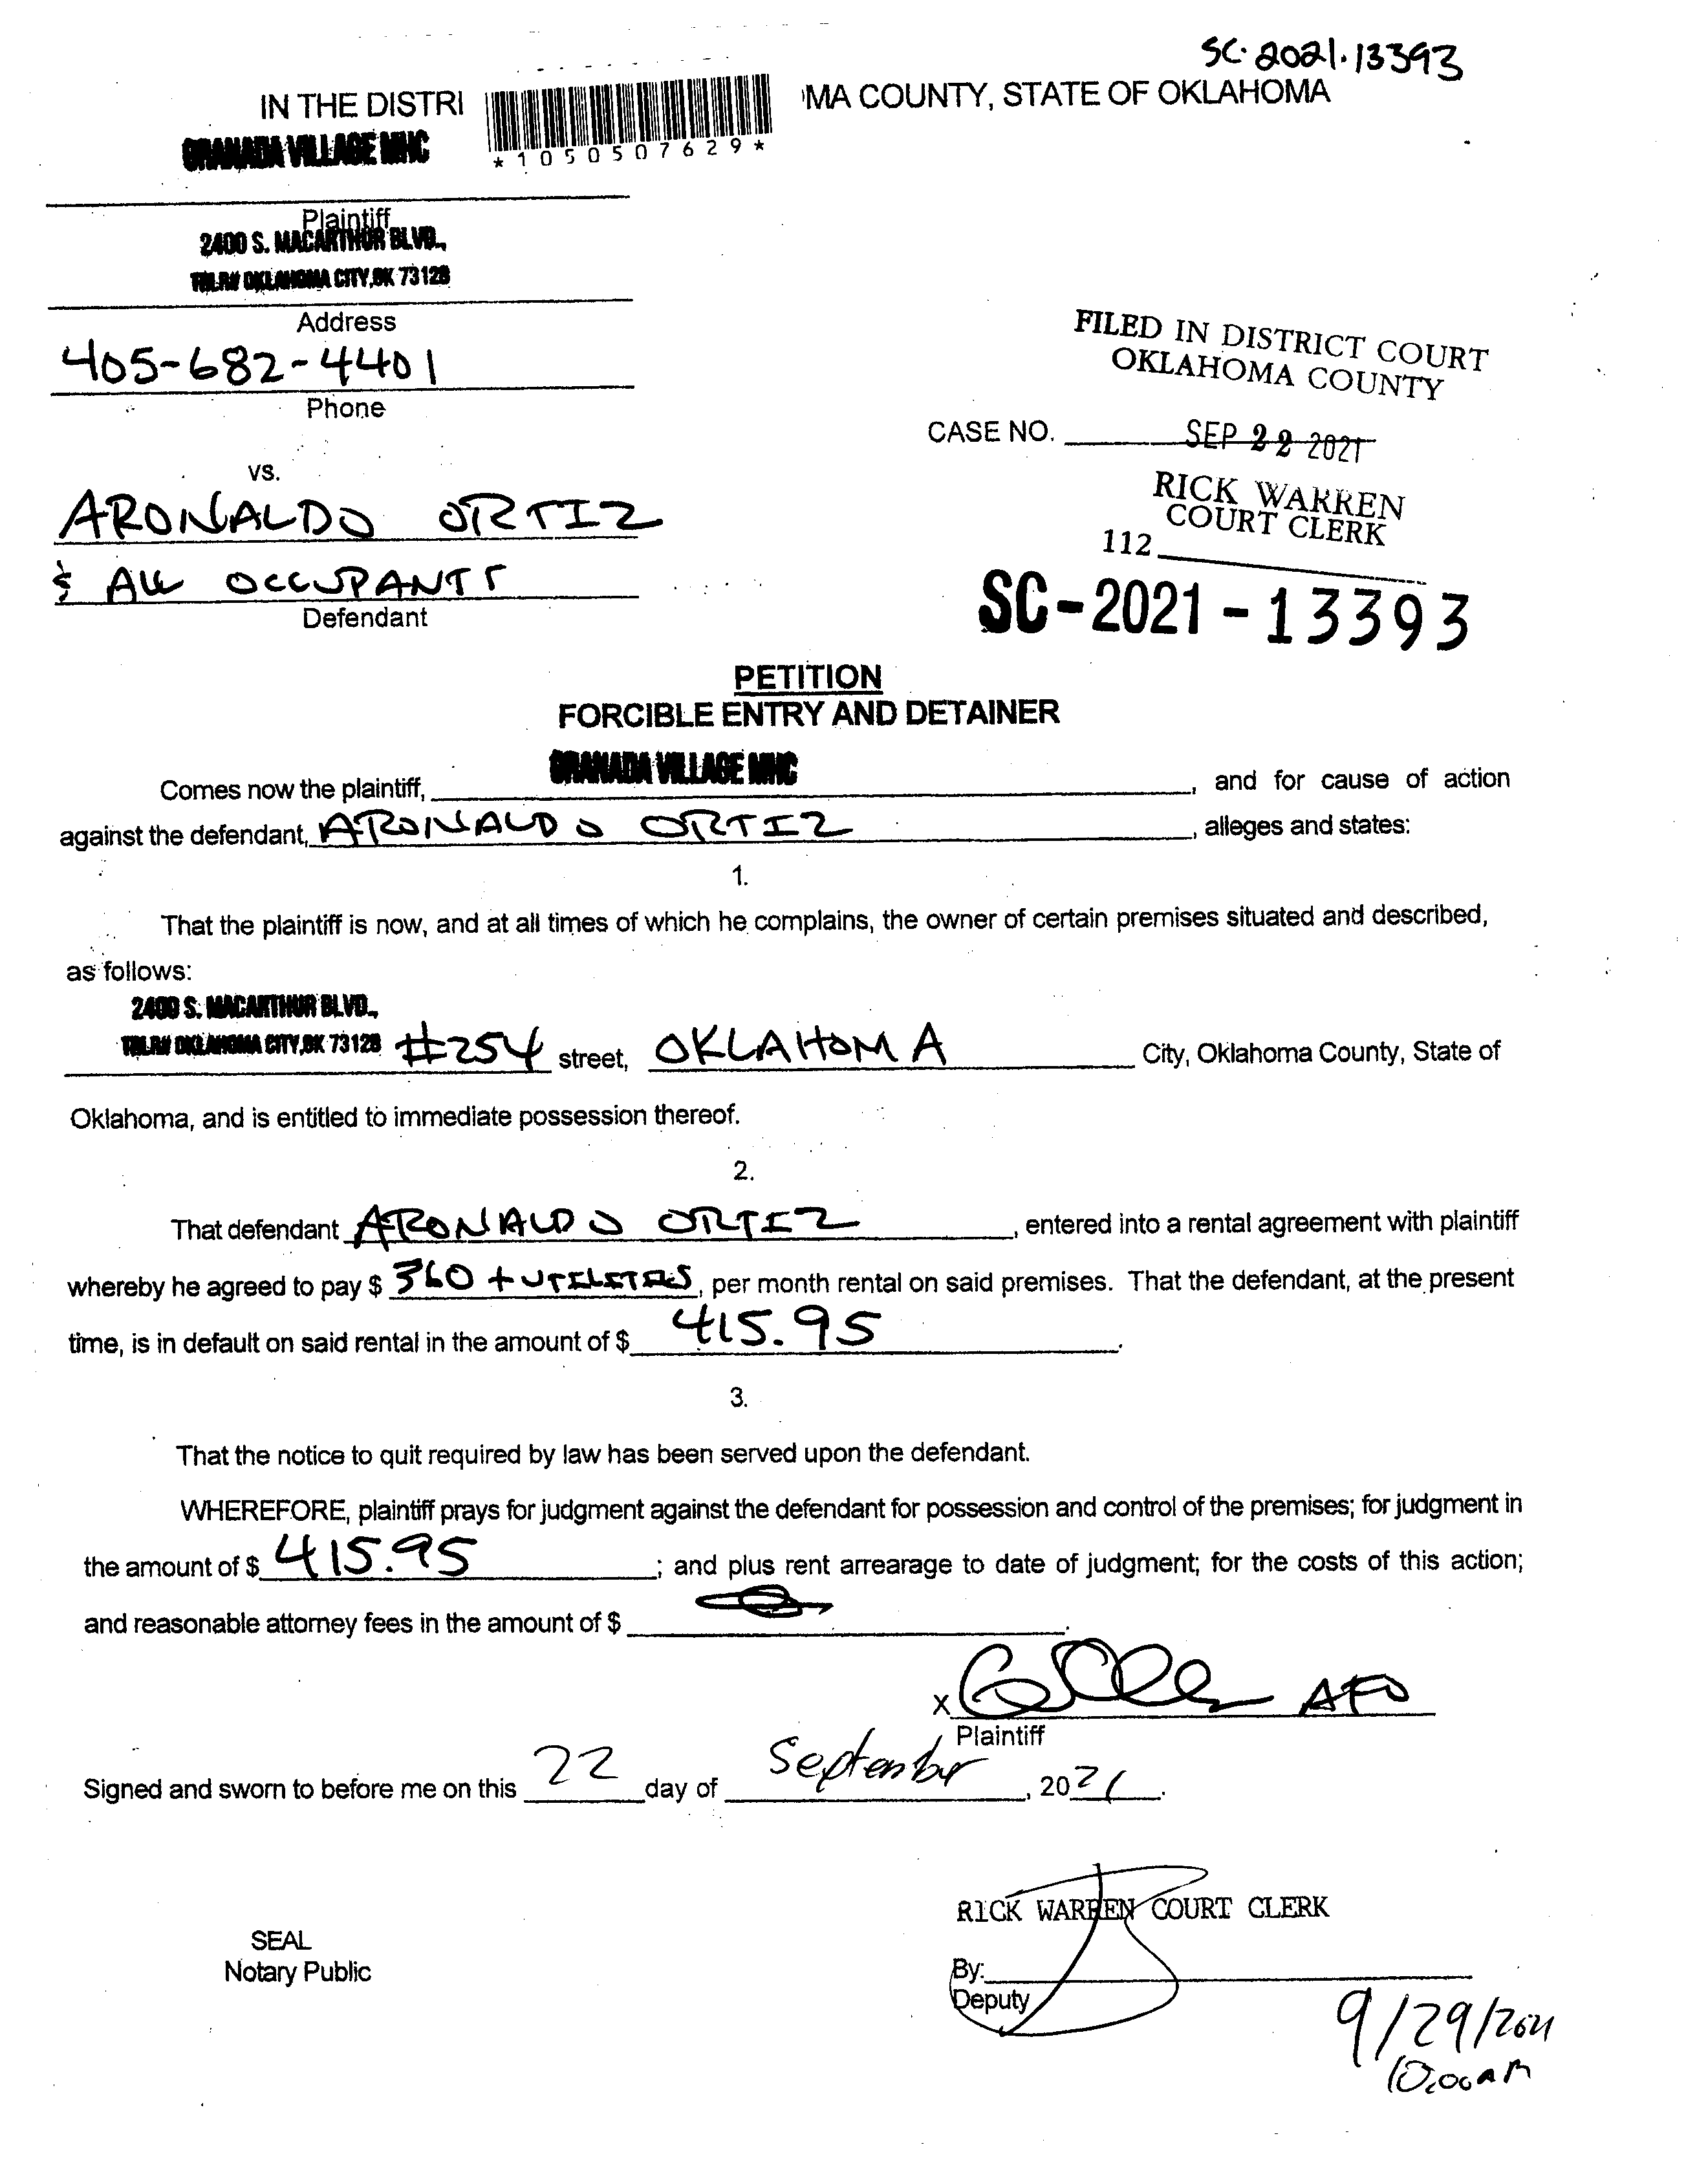 SC-2021-13393
IN THE DISTRI
MA COUNTY, STATE OF OKLAHOMA
*1050507629*
GRANADA VILLAGE MHC
Plaintiff
2400 S. MACARTHUR BLVD.,
TRLR# OKLAHOMA CITY, OK 73128
Address
405-682-4401
Phone
FILED IN DISTRICT COURT
OKLAHOMA COUNTY
CASE NO.
SEP 22 2021
RICK WARREN
COURT CLERK
112
vs.
ARONALDO ORTIZ
& ALL OCCUPANTS
Defendant
SC-2021-13393
PETITION
FORCIBLE ENTRY AND DETAINER
Comes now the plaintiff, GRANADA VILLAGE MHC, and for cause of action
against the defendant, ARONALDO ORTIZ, alleges and states:
1.
That the plaintiff is now, and at all times of which he complains, the owner of certain premises situated and described,
as follows:
2400 S. MACARTHUR BLVD.,
TRLR# OKLAHOMA CITY, OK 73128 #254 street, OKLAHOMA City, Oklahoma County, State of
Oklahoma, and is entitled to immediate possession thereof.
2.
That defendant ARONALDO ORTIZ, entered into a rental agreement with plaintiff
whereby he agreed to pay $ 360 + UTILITIES, per month rental on said premises. That the defendant, at the present
time, is in default on said rental in the amount of $ 415.95.
3.
That the notice to quit required by law has been served upon the defendant.
WHEREFORE, plaintiff prays for judgment against the defendant for possession and control of the premises; for judgment in
the amount of $ 415.95; and plus rent arrearage to date of judgment; for the costs of this action;
and reasonable attorney fees in the amount of $
X
Plaintiff
Signed and sworn to before me on this 22 day of September, 2021.
RICK WARREN COURT CLERK
SEAL
Notary Public
By:
Deputy
9/29/2021
10:00AM